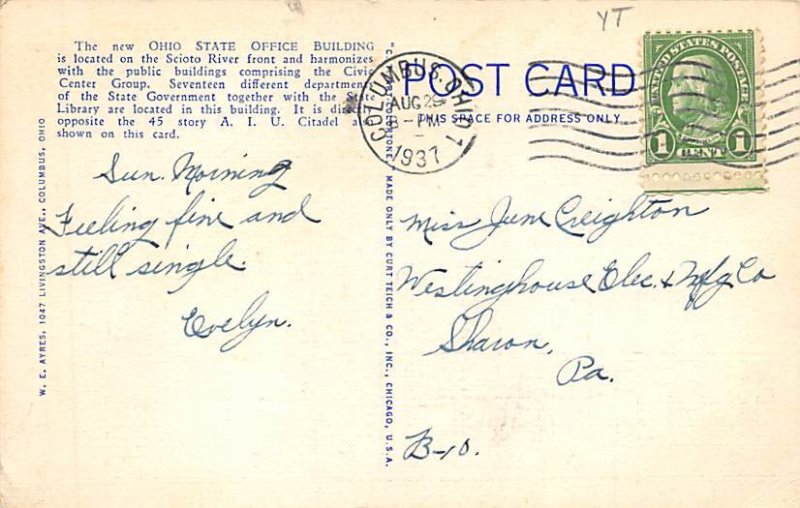 YT
The new OHIO STATE OFFICE BUILDING
is located on the Scioto River front and harmonizes
with the public buildings comprising the Civic
Center Group. Seventeen different
of the State Government together with the
Library are located in this building. It is
opposite the 45 story A. I. U. Citadel
shown on this card.
POST CARD
THIS SPACE FOR ADDRESS ONLY
COLUMBUS, OHIO 1
AUG 29
3-PM
1937
UNITED STATES POSTAGE
1 CENT 1
Sun. Morning
Feeling fine and
still single.
Evelyn.
Miss June Creighton
Westinghouse Elec. & Mfg Co
Sharon,
Pa.
B-10.
W. E. AYRES, 1047 LIVINGSTON AVE., COLUMBUS, OHIO
MADE ONLY BY CURT TEICH & CO., INC., CHICAGO, U.S.A.